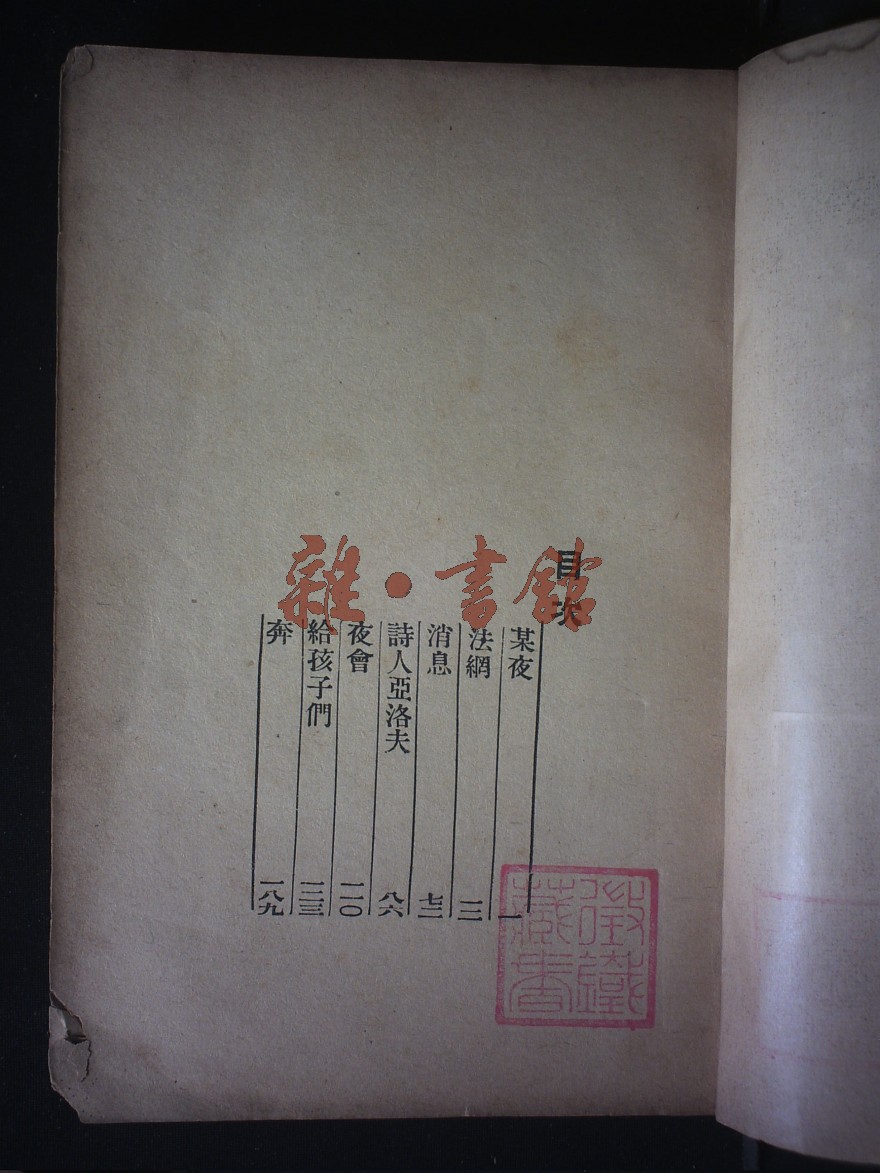 目次
某夜 一
法網 一二
消息 七三
詩人亞洛夫 八六
夜會 一一〇
給孩子們 一二三
奔 一八九
雜·書館
藏書